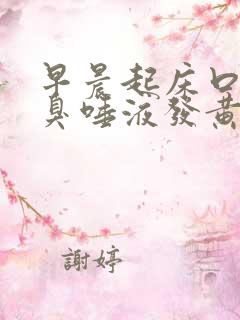 早晨起床口
臭唾液發黃
謝婷